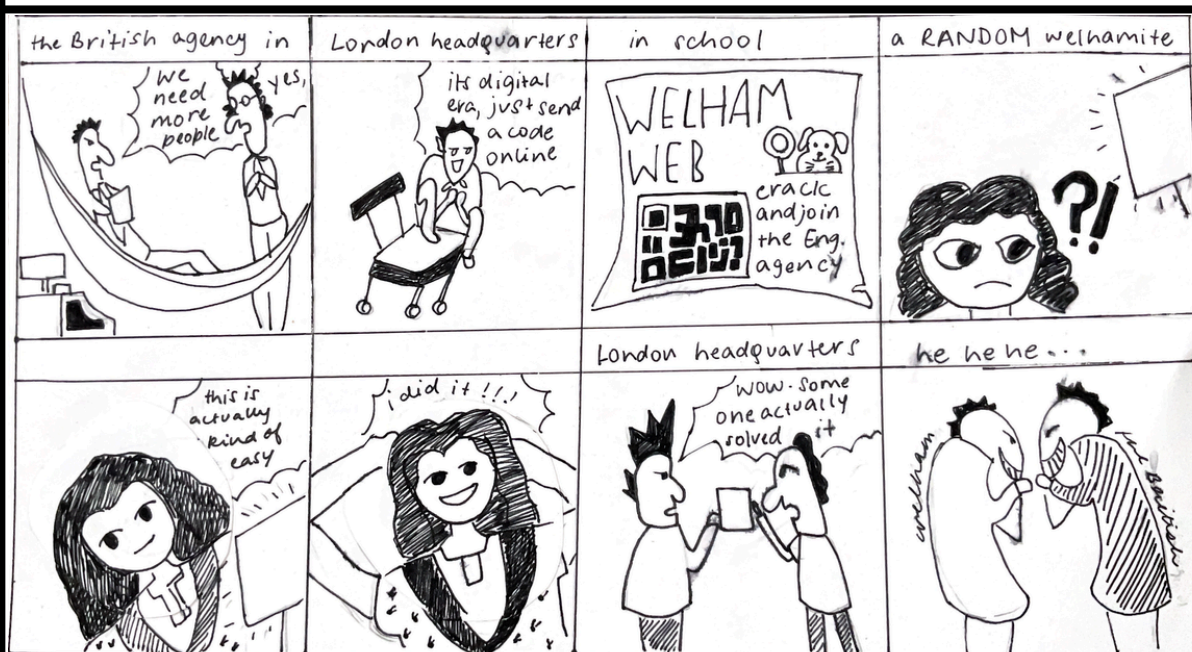 the British agency in
we
need
more
people
yes,
London headquarters
its digital
era, just send
a code
online
in school
WELHAM
WEB
crack
and join
the Eng.
agency
a RANDOM welhamite
?!
this is
actually
kind of
easy
i did it !!!!
London headquarters
wow. some
one actually
solved it
he he he...
welham
the British